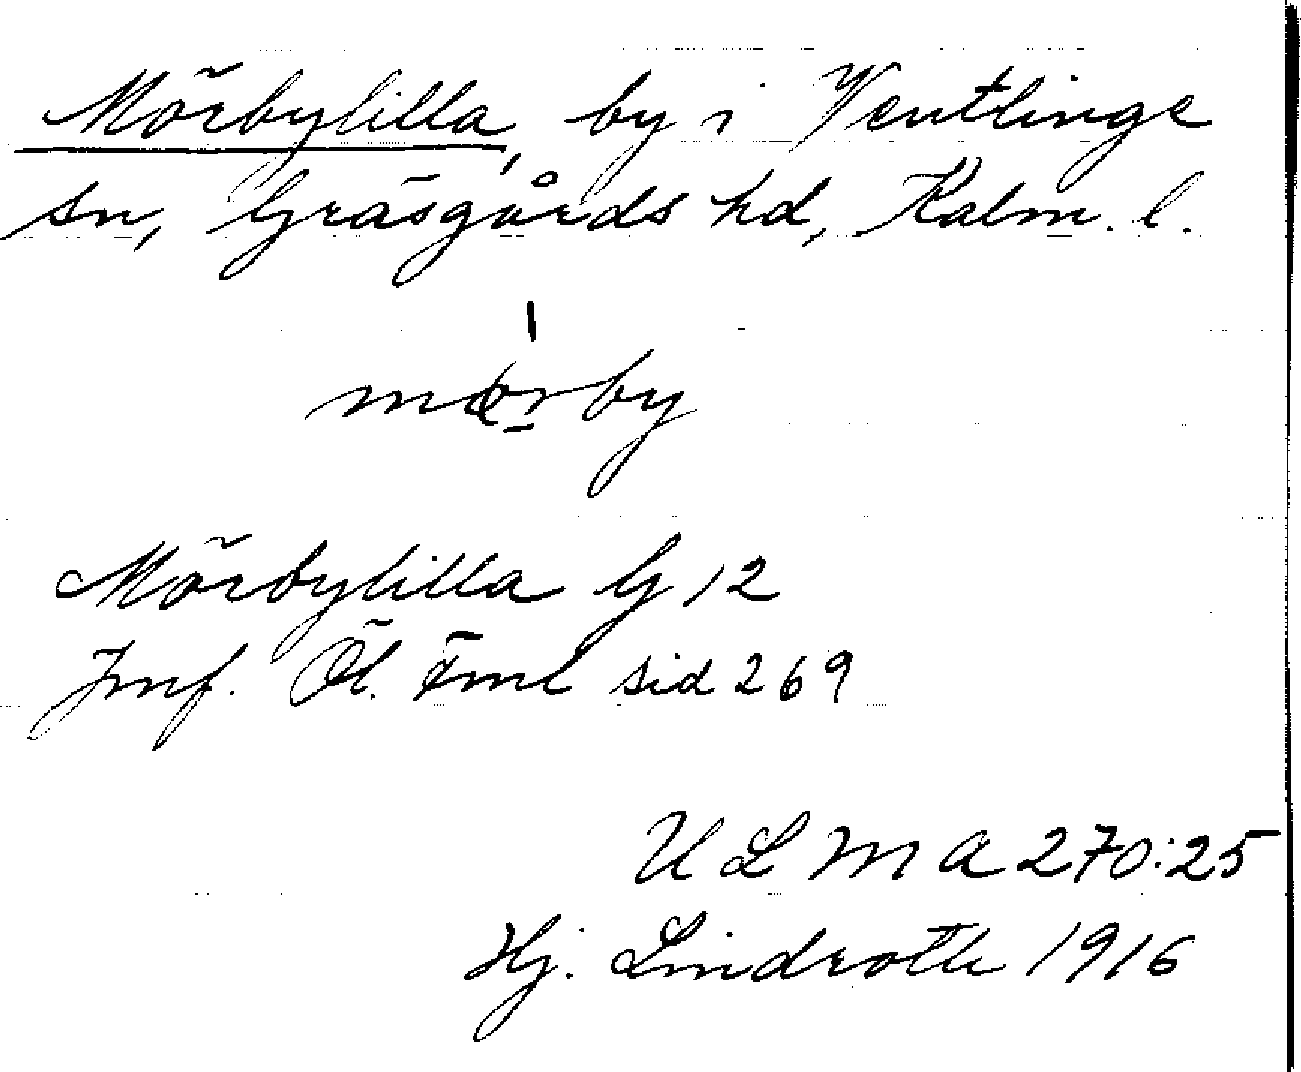 Mörbylilla, by i Ventlinge
sn, Gräsgårds hd, Kalm. l.
mørby
Mörbylilla G 12
Jmf. Öl. Fml sid 269
ULMA 270:25
Hj. Lindroth 1916